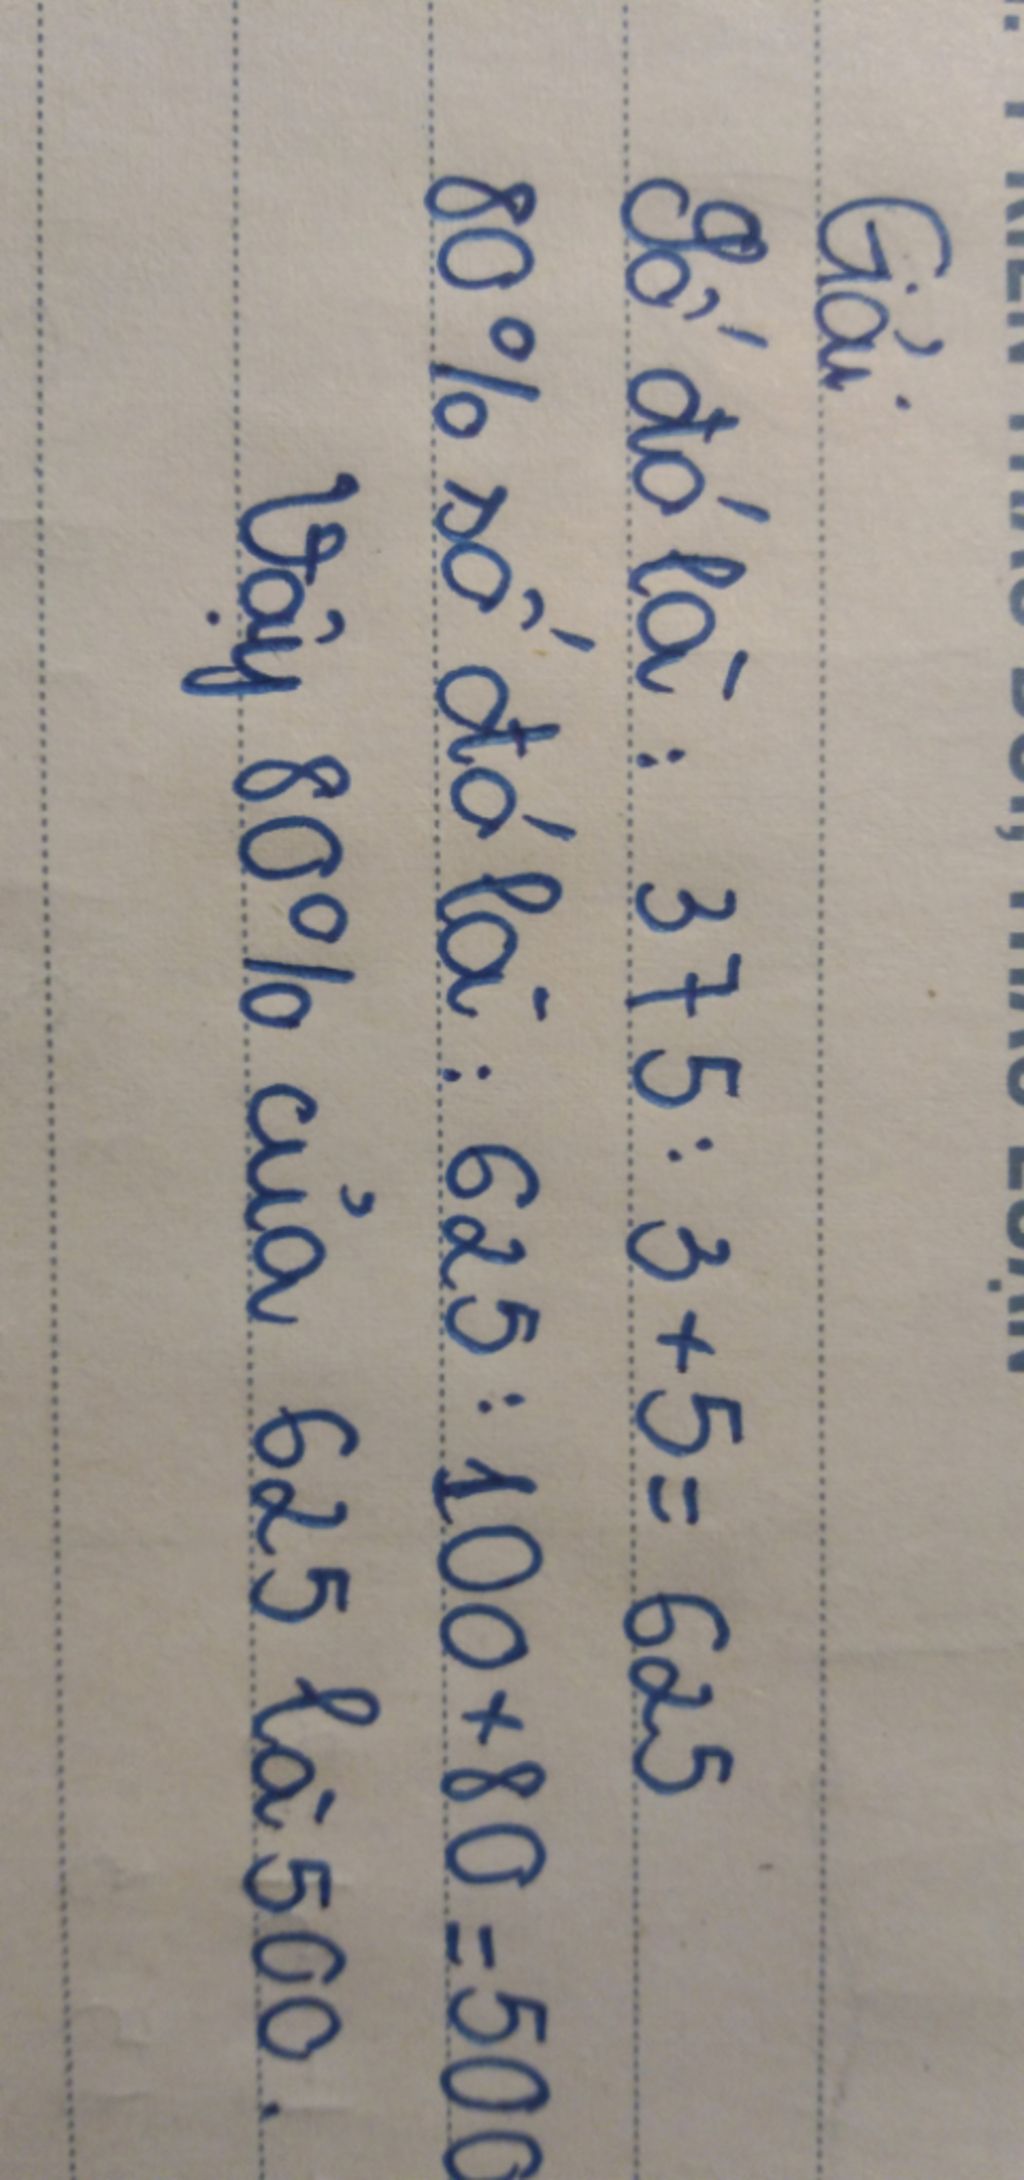 Giải
Số đó là: 375 : 3 × 5 = 625
80% số đó là: 625 : 100 × 80 = 500
Vậy 80% của 625 là 500.